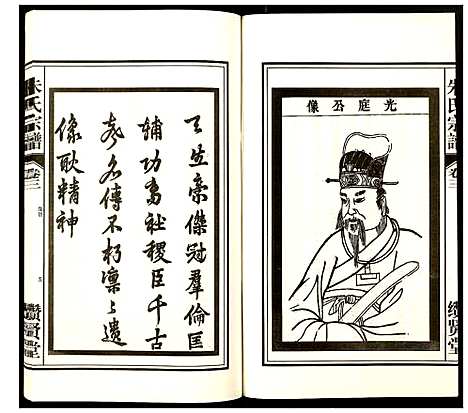 光庭公像
朱氏宗譜
卷三
纘賢堂
天生豪傑冠羣倫匡
輔功高社稷臣千古
芳名傳不朽凜々遺
像耿精神
朱氏宗譜
卷三
纘賢堂